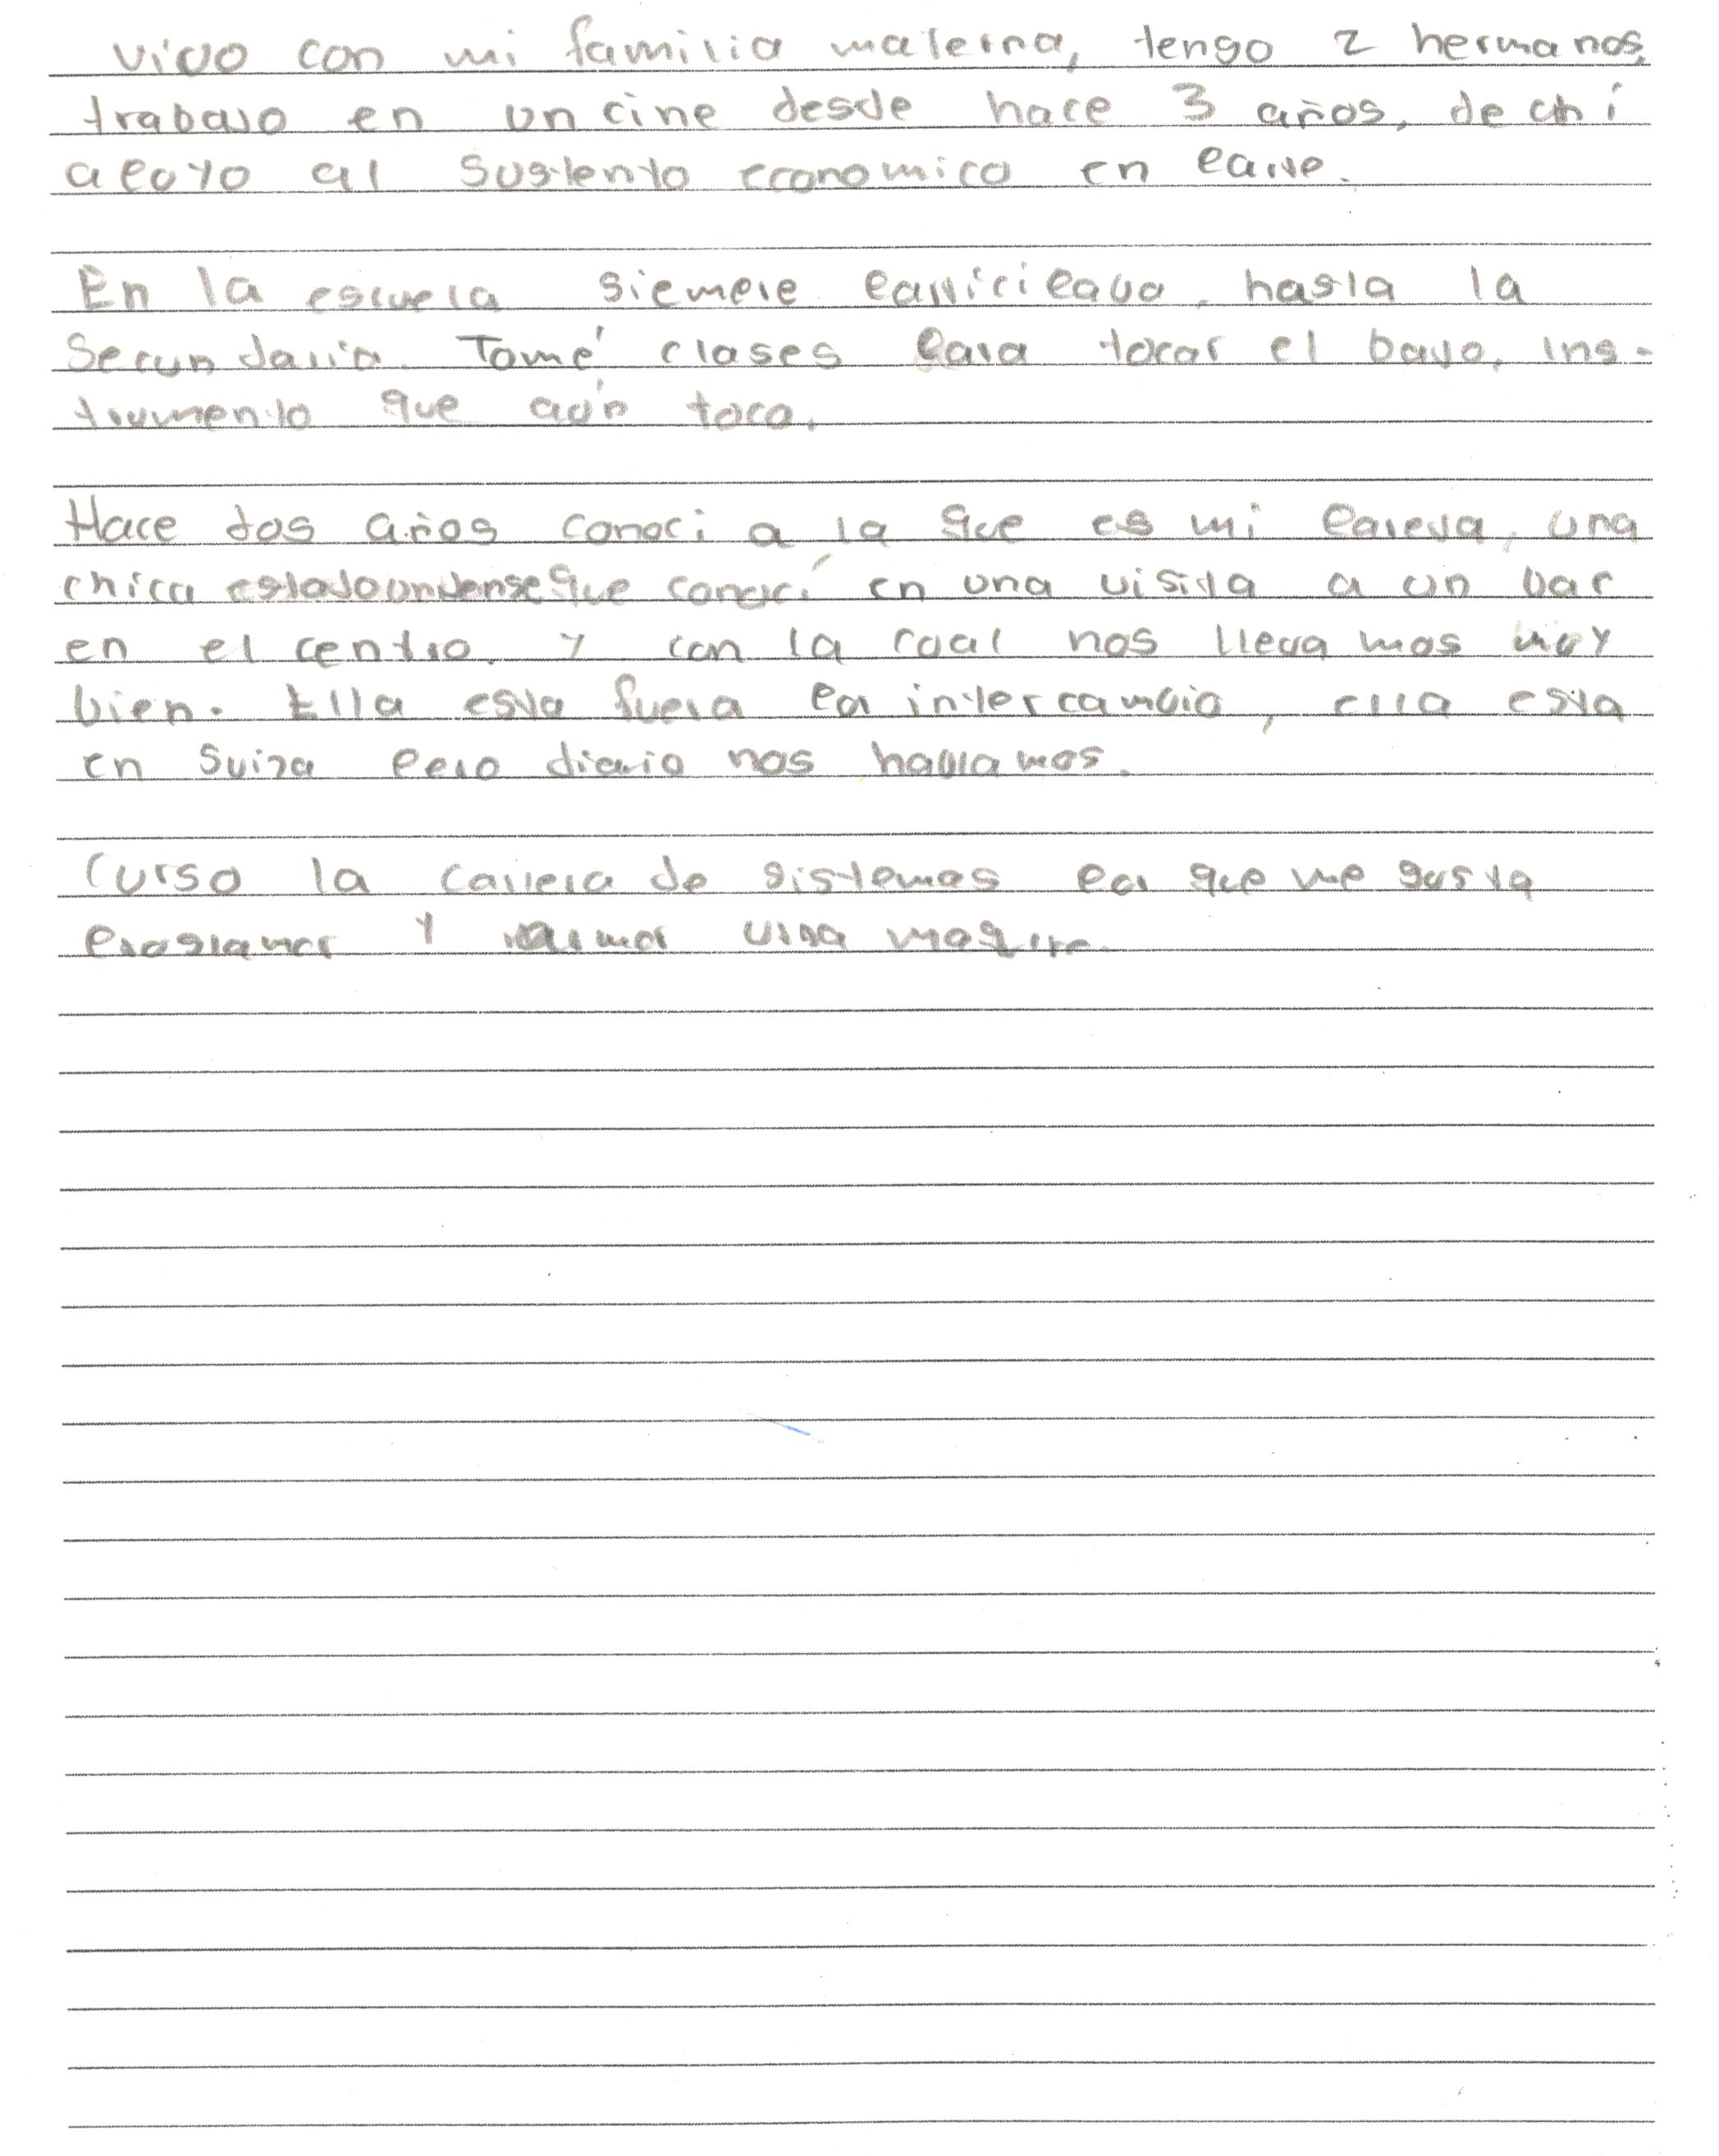 vivo con mi familia materna, tengo 2 hermanos,
trabajo en un cine desde hace 3 años, de ahí
apoyo al sustento economico en parte.
En la escuela siempre participaba, hasta la
Secundaria. Tomé clases para tocar el bajo, ins-
trumento que aún toco.
Hace dos años conoci a la que es mi pareja, una
chica estadounidense que conocí en una visita a un bar
en el centro. Y con la cual nos llevamos muy
bien. Ella esta fuera por intercambio, ella esta
en Suiza pero diario nos hablamos.
Curso la carrera de sistemas por que me gusta
programar y una